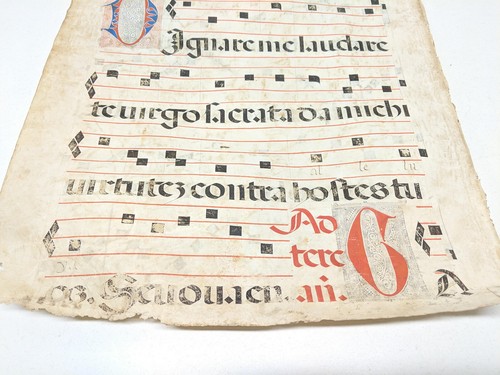 DIgnare me laudare
te uirgo sacrata da michi
al le lu
uirtutez contra hostes tu
Ad
tere
os. Seuouaeu. añ. G A